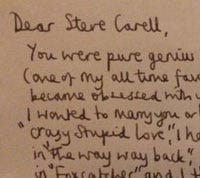 Dear Steve Carell,
You were pure genius
(one of my all time fav
became obsessed with
I wanted to marry you or
"crazy Stupid Love", I he
in "the way way back",
in "Foxcatcher" and I t